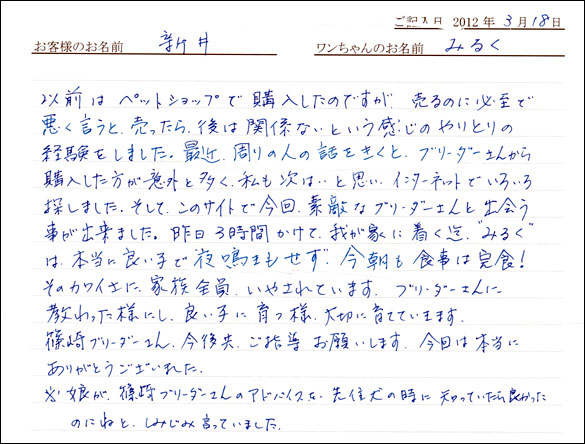 ご記入日 2012年 3月 18日
お客様のお名前 新井 ワンちゃんのお名前 みるく
以前は ペットショップで 購入したのですが 売るのに必至で
悪く言うと、売ったら、後は関係ないという感じのやりとりの
経験をしました。最近、周りの人の話をきくと、ブリーダーさんから
購入した方が意外と多く、私も次は…と思い、インターネットでいろいろ
探しました。そして、このサイトで今回、素敵なブリーダーさんと出会う
事が出来ました。昨日 3時間かけて、我が家に着く迄、"みるく"
は、本当に良い子で 夜鳴きもせず、今朝も食事は完食!
そのカワイさに、家族全員、いやされています。 ブリーダーさんに
教わった様にし、良い子に育つ様、大切に育てていきます。
篠崎ブリーダーさん、今後共、ご指導お願いします。今回は本当に
ありがとうございました。
※娘が、篠崎ブリーダーさんのアドバイスを、先住犬の時に知っていたら良かった
のにねと、しみじみ言っていました。